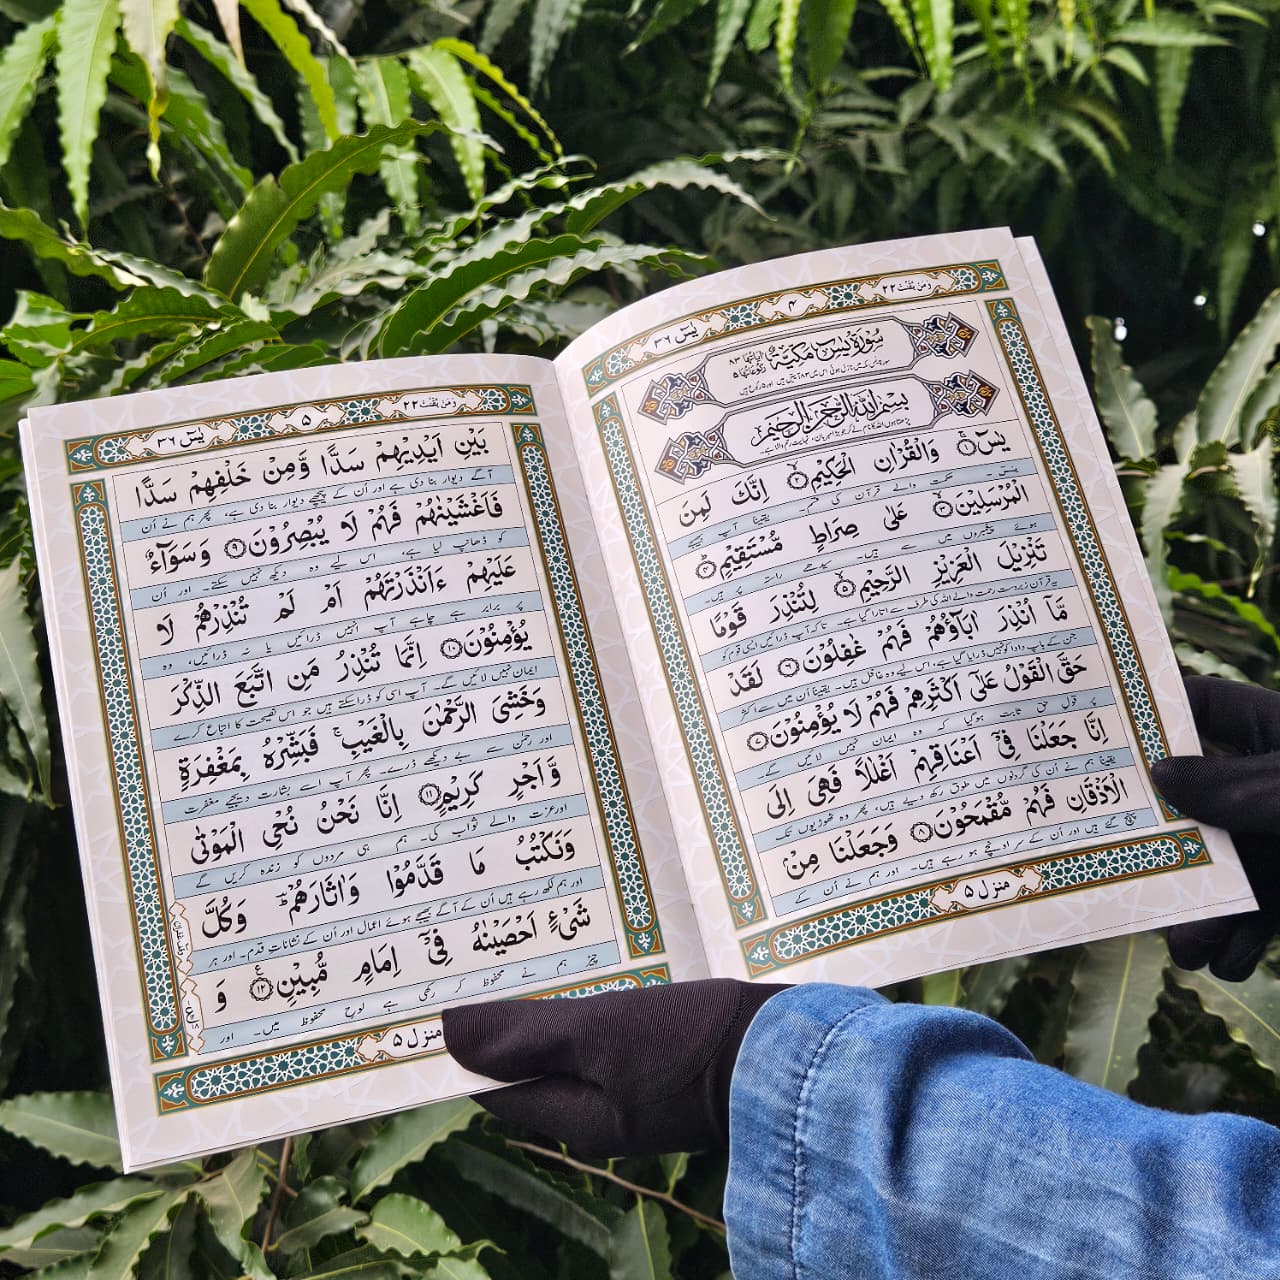 وَمَنْ يَّقْنُتْ ٢٢
۴
يٰسٓ ٣٦
سُوْرَةُ يٰسٓ مَكِّيَّةٌ
اٰيَاتُهَا ٨٣
رُكُوْعَاتُهَا ۵
بِسْمِ اللّٰهِ الرَّحْمٰنِ الرَّحِيْمِ
يٰسٓ ۝١ وَالْقُرْاٰنِ الْحَكِيْمِ ۝٢ اِنَّكَ لَمِنَ
یٰسٓ۔ حکمت والے قرآن کی قسم۔ یقیناً آپ بھیجے
الْمُرْسَلِيْنَ ۝٣ عَلٰى صِرَاطٍ مُّسْتَقِيْمٍ ۝۴
ہوئے پیغمبروں میں سے ہیں۔ سیدھے راستہ پر ہیں۔
تَنْزِيْلَ الْعَزِيْزِ الرَّحِيْمِ ۝۵ لِتُنْذِرَ قَوْمًا
یہ قرآن زبردست رحمت والے اللہ کی طرف سے اتارا گیا ہے۔ تاکہ آپ ڈرائیں ایسی قوم کو
مَّآ اُنْذِرَ اٰبَآؤُهُمْ فَهُمْ غٰفِلُوْنَ ۝٦ لَقَدْ
جن کے باپ دادا کو نہیں ڈرایا گیا ہے، اس لیے وہ غافل ہیں۔ یقیناً اُن میں سے اکثر
حَقَّ الْقَوْلُ عَلٰٓى اَكْثَرِهِمْ فَهُمْ لَا يُؤْمِنُوْنَ ۝٧
پر قول حق ثابت ہوگیا کہ وہ ایمان نہیں لائیں گے۔
اِنَّا جَعَلْنَا فِيْٓ اَعْنَاقِهِمْ اَغْلٰلًا فَهِيَ اِلَى
یقیناً ہم نے اُن کی گردنوں میں طوق رکھ دیے ہیں، پھر وہ ٹھوڑیوں تک
الْاَذْقَانِ فَهُمْ مُّقْمَحُوْنَ ۝٨ وَجَعَلْنَا مِنْۢ
پہنچ گئے ہیں اور اُن کے سر اونچے ہو رہے ہیں۔ اور ہم نے اُن کے
منزل ۵
وَمَنْ يَّقْنُتْ ٢٢
۵
يٰسٓ ٣٦
بَيْنِ اَيْدِيْهِمْ سَدًّا وَّمِنْ خَلْفِهِمْ سَدًّا
آگے دیوار بنا دی ہے اور اُن کے پیچھے دیوار بنا دی ہے، پھر ہم نے اُن
فَاَغْشَيْنٰهُمْ فَهُمْ لَا يُبْصِرُوْنَ ۝٩ وَسَوَآءٌ
کو ڈھانپ لیا ہے، اس لیے وہ دیکھ نہیں سکتے۔ اور اُن
عَلَيْهِمْ ءَاَنْذَرْتَهُمْ اَمْ لَمْ تُنْذِرْهُمْ لَا
پر برابر ہے چاہے آپ انہیں ڈرائیں یا نہ ڈرائیں، وہ
يُؤْمِنُوْنَ ۝١٠ اِنَّمَا تُنْذِرُ مَنِ اتَّبَعَ الذِّكْرَ
ایمان نہیں لائیں گے۔ آپ اسی کو ڈرا سکتے ہیں جو اس نصیحت کا اتباع کرے
وَخَشِيَ الرَّحْمٰنَ بِالْغَيْبِ ۚ فَبَشِّرْهُ بِمَغْفِرَةٍ
اور رحمن سے بے دیکھے ڈرے۔ پھر آپ اسے بشارت دیجیے مغفرت
وَّاَجْرٍ كَرِيْمٍ ۝١١ اِنَّا نَحْنُ نُحْيِ الْمَوْتٰى
اور عزت والے ثواب کی۔ ہم ہی مردوں کو زندہ کریں گے
وَنَكْتُبُ مَا قَدَّمُوْا وَاٰثَارَهُمْ ؕ وَكُلَّ
اور ہم لکھ رہے ہیں اُن کے آگے بھیجے ہوئے اعمال اور اُن کے نشانات قدم۔ اور ہر
شَيْءٍ اَحْصَيْنٰهُ فِيْٓ اِمَامٍ مُّبِيْنٍ ۝١٢ وَ
چیز ہم نے محفوظ کر رکھی ہے لوح محفوظ میں۔ اور
منزل ۵